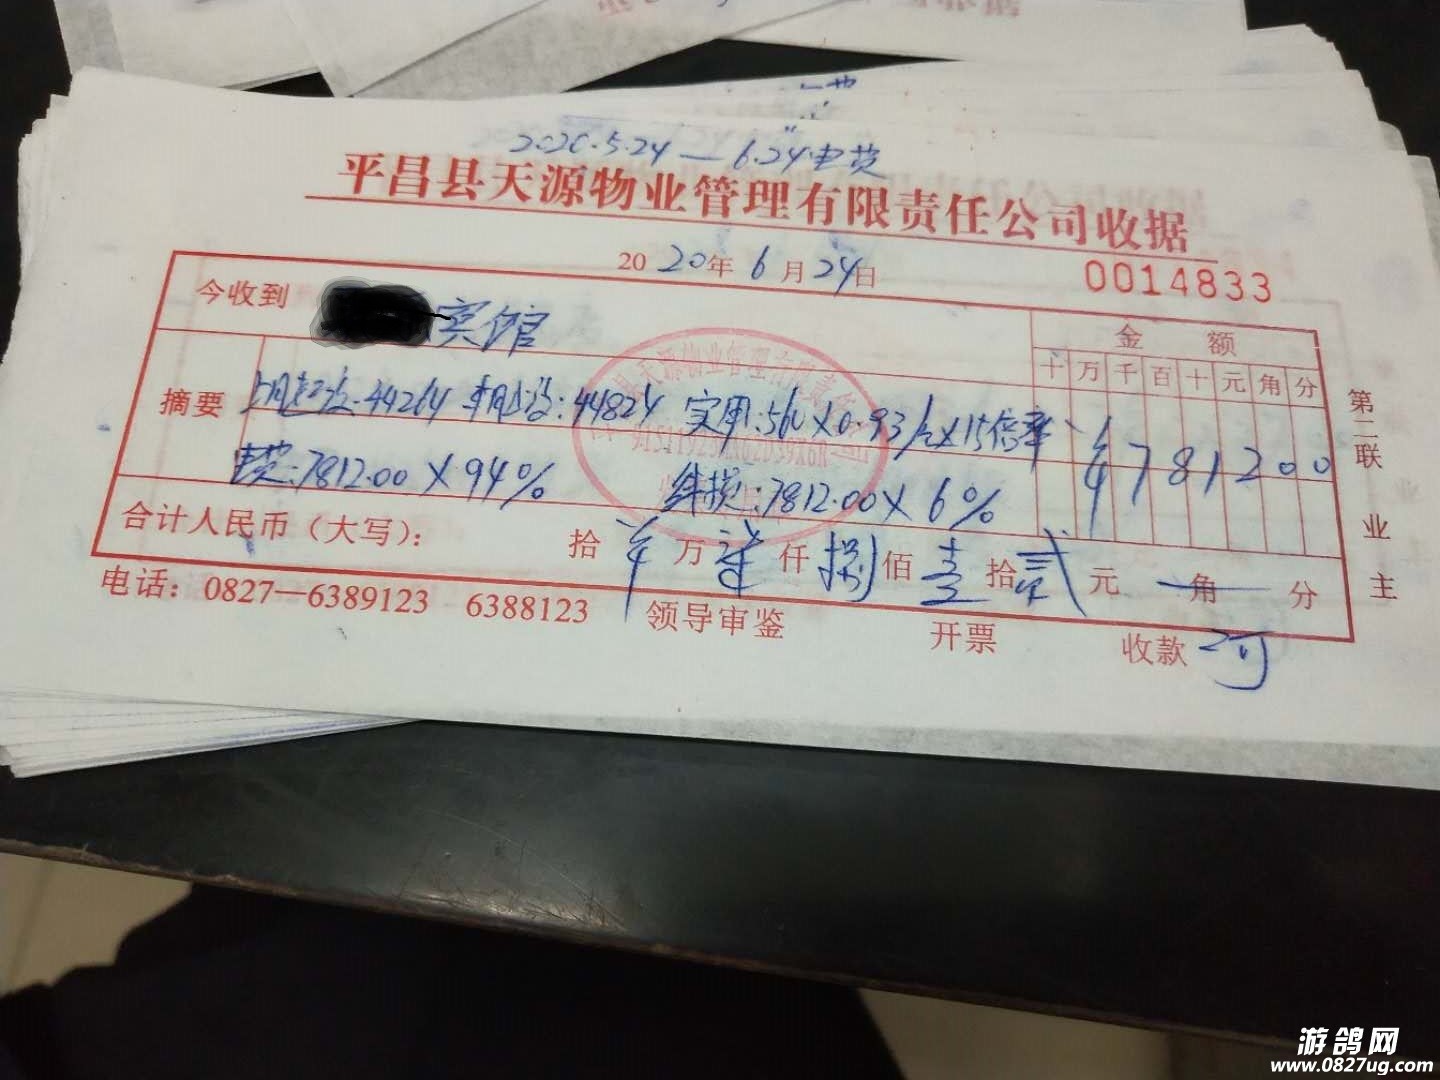 2020.5.24—6.24电费
平昌县天源物业管理有限责任公司收据
2020年6月24日
0014833
今收到 宾馆
金额
十万千百十元角分
摘要 上月起度:44264 本月止度:44824 实用:560×0.93/度×15倍率
¥781200
电费:7812.00×94% 线损:7812.00×6%
合计人民币（大写）: 拾 万 柒仟捌佰壹拾贰元 角 分
电话：0827—6389123 6388123 领导审鉴 开票 收款
第二联 业主
游鸽网
www.0827ug.com